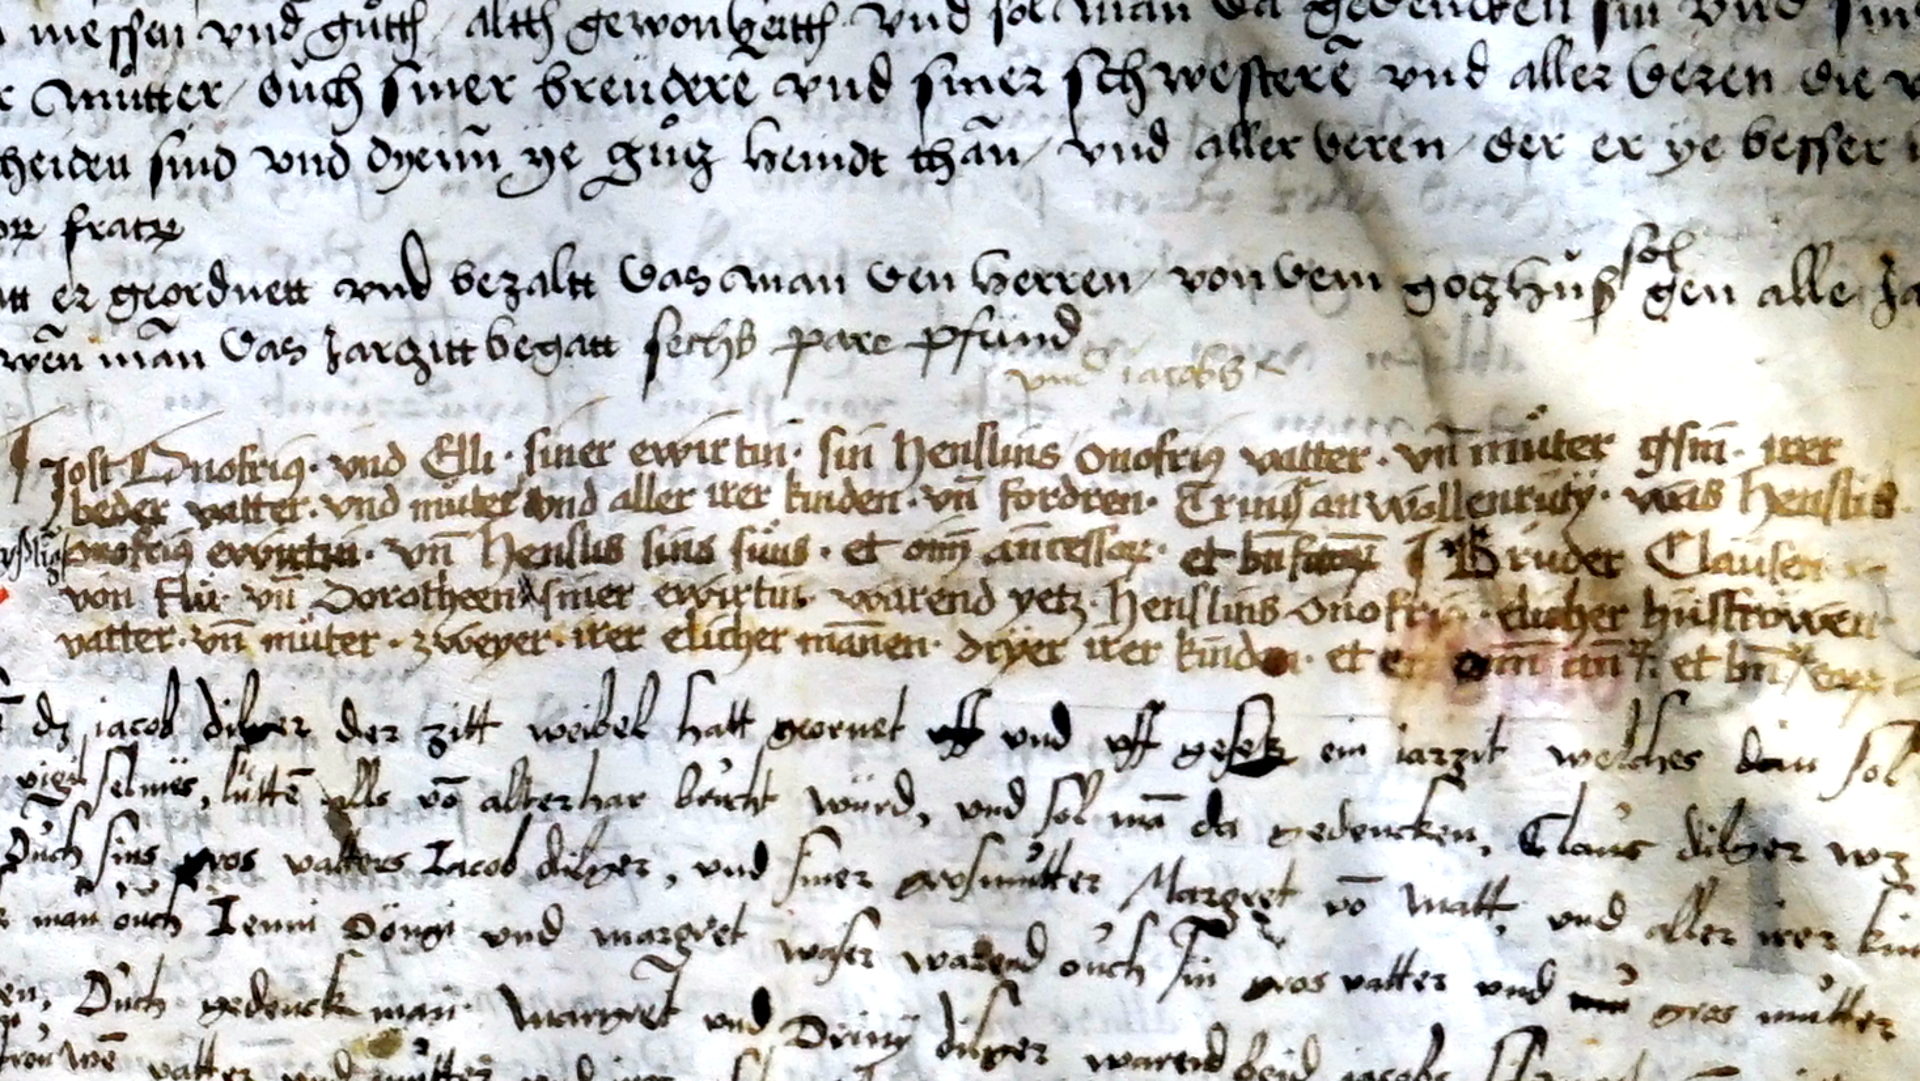 messen vnd gůtth altth gewonheitth vnd sol man da gedencken sin vnd sin
můtter oůch siner breüdere vnd siner schwesterē vnd aller deren die
cheiden sind vnd dyeinn ye gůtz heindt thān vnd aller deren der er ye besser
fratrꝝ
er geordnett vnd bezaltt das man den herren von dem gotzhuß sol gen alle Ja
wēn mān das Jarzitt begatt sechs pare pfund
vnd iacobs
Jost Onofriꝰ · vnd Elli · siner ewirtin · sin Henslins onofriꝰ vatter · vn̄ můter gsin · irer
beder vatter · vnd můter vnd aller irer kinden · vn̄ fordren · Trini an wollenrüty · was Henslis
onofriꝰ ewirtin · vn̄ Henslis sins suns · et om̄ ancessoꝝ · et bn̄factoꝝ Bruder Clausen
von flü · vn̄ Dorotheen siner ewirtin · warend yetz · Henslins onofriꝰ · elicher husfrowen
vatter · vn̄ můter · zweyer · irer elicher mannen · dryer irer kinden · et om̄ et bn̄
dz jacob dilger der zitt weibel hatt geornet vnd vff gesetz ein iarzit welches dan sol
selmes, lüttē alls vō alterhar brucht würd, vnd sol mā da gedencken, Claus dilger wz
Ouch sins gros vatters Jacob dilger, vnd siner grosmůtter Margret vō matt, vnd aller irer kin
man ouch Jenni Döngi vnd margret waser warend ouch sin gros vatter vnd gros můtter
Ouch gedenck man margret vnd Driny dilger warend beid jacobs
frouwē vatter vnd můtter